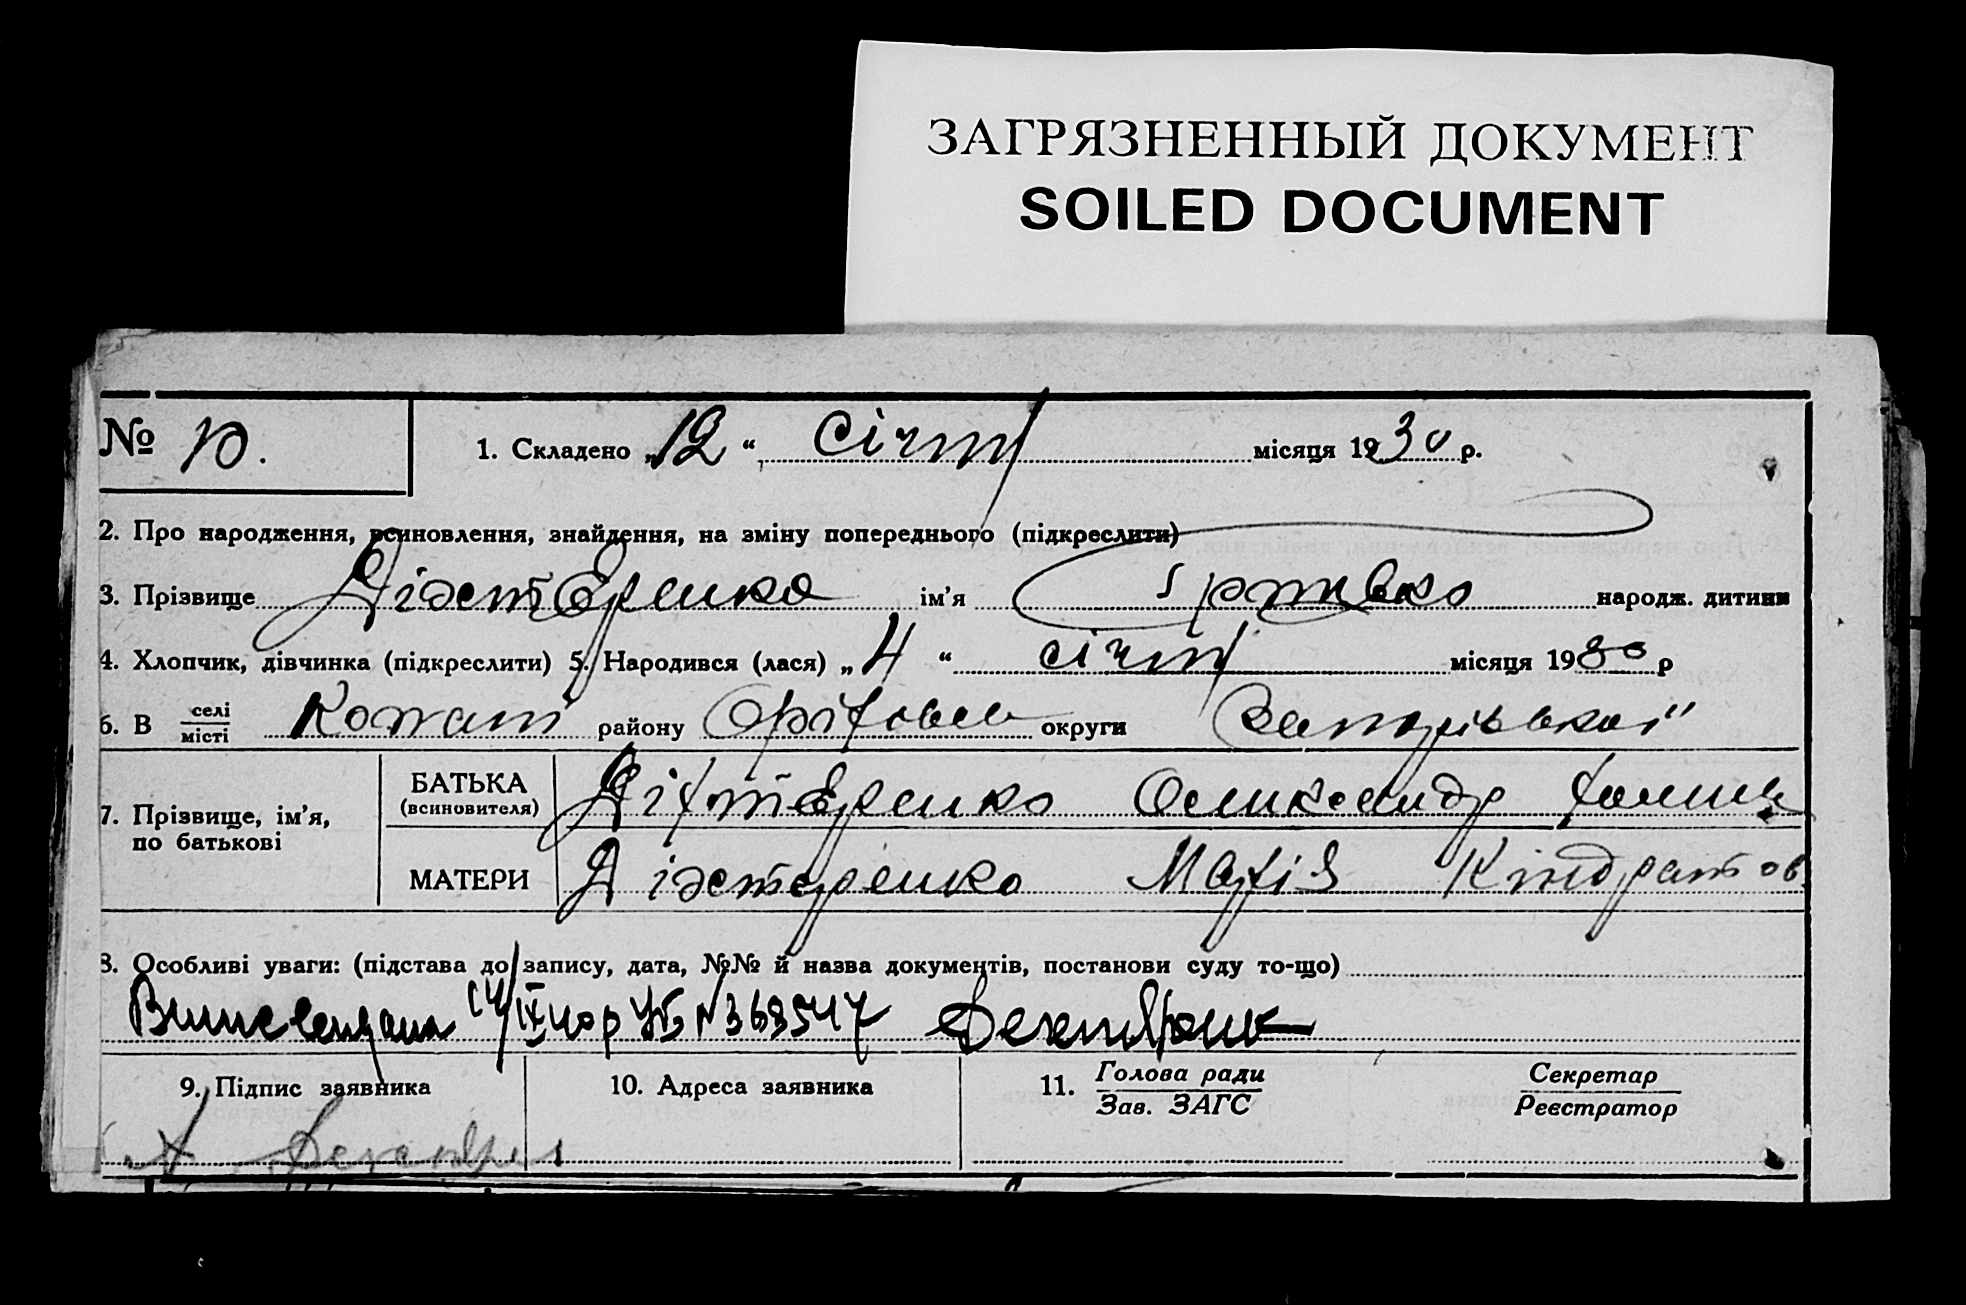 ЗАГРЯЗНЕННЫЙ ДОКУМЕНТ
SOILED DOCUMENT
№ 10.
1. Складено „12“ січня місяця 1930 р.
2. Про народження, всиновлення, знайдення, на зміну попереднього (підкреслити)
3. Прізвище Дігтяренко ім’я народж. дитини
4. Хлопчик, дівчинка (підкреслити) 5. Народився (лася) „4“ січня місяця 1930 р
6. В селі/місті Копані району Оріхово округи Запорізької
7. Прізвище, ім’я, по батькові
БАТЬКА (всиновителя) Дігтяренко Олександр
МАТЕРИ Дігтяренко Марія Кіндратов
8. Особливі уваги: (підстава до запису, дата, №№ й назва документів, постанови суду то-що)
14/IX 40 р УБ N 368547
9. Підпис заявника
10. Адреса заявника
11. Голова ради / Зав. ЗАГС
Секретар / Реєстратор